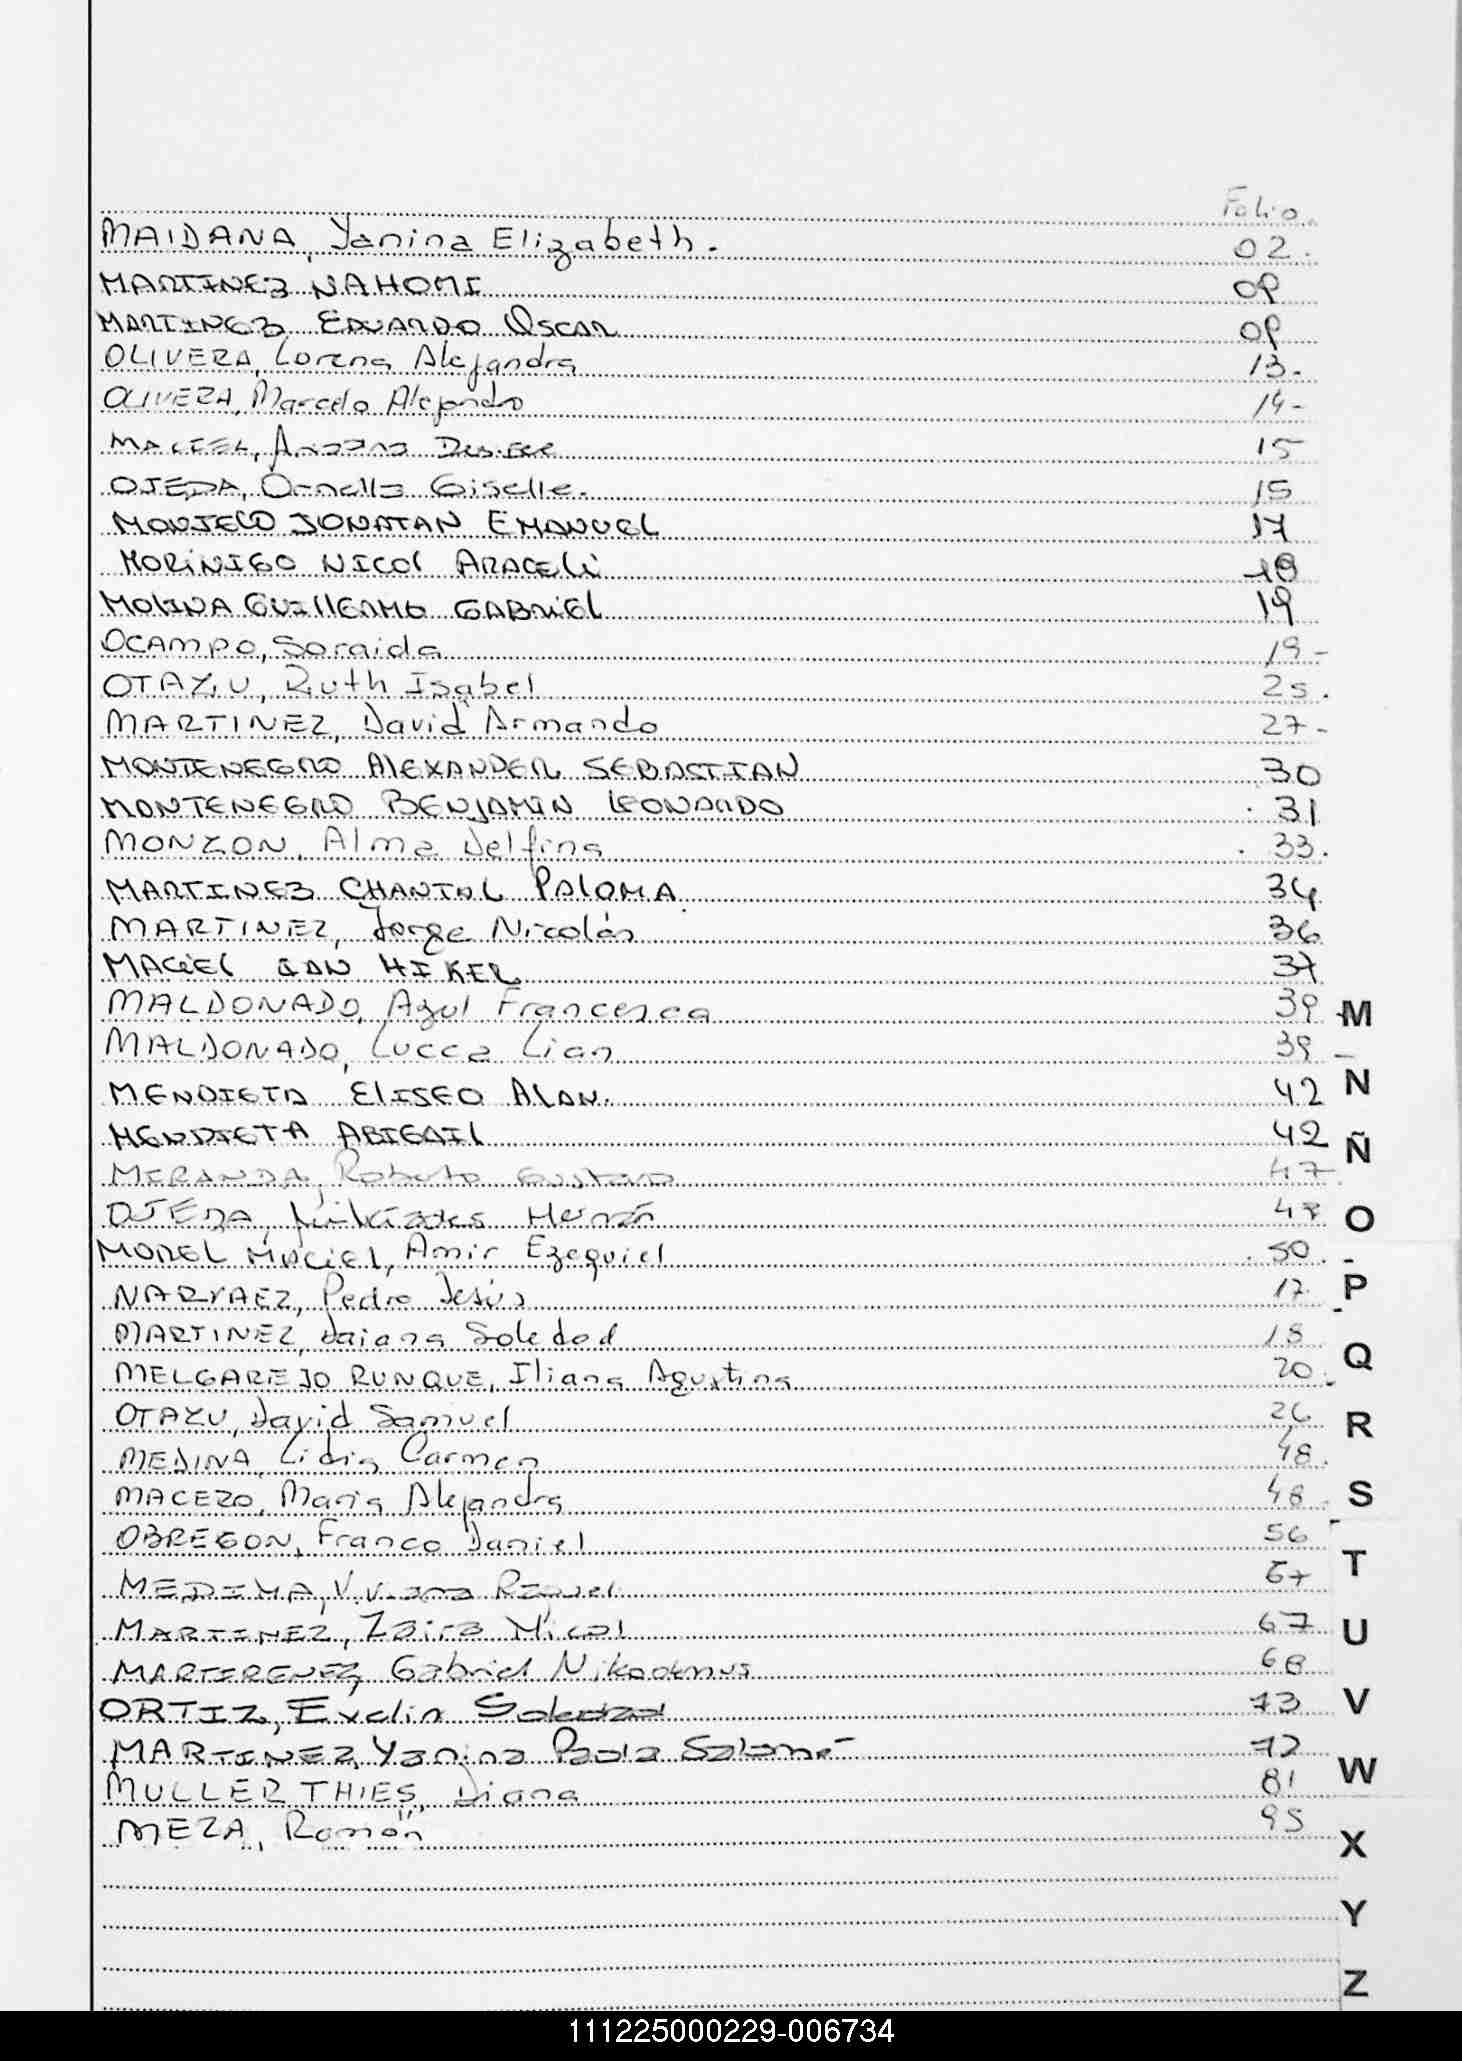 Folio
MAIDANA, Yanina Elizabeth. 02.
MARTINEZ NAHOMI 09
MARTINEZ EDUARDO OSCAR 09
OLIVERA, Lorena Alejandra 13.
OLIVERA, Marcelo Alejandro 14-
MACIEL, Desiree 15
OJEDA, Ornella Giselle. 15
MONJELO JONATAN EMANUEL 17
MORINIGO NICOL ARACELI 18
MOLINA GUILLERMO GABRIEL 19
OCAMPO, Soraida 19-
OTAZU, Ruth Isabel 25.
MARTINEZ, David Armando 27-
MONTENEGRO ALEXANDER SEBASTIAN 30
MONTENEGRO BENJAMIN LEONARDO 31
MONZON, Alma Delfina 33.
MARTINEZ CHANTAL PALOMA 34
MARTINEZ, Jorge Nicolás 36
MACIEL IAN HIKER 37
MALDONADO, Azul Francesca 39
M
MALDONADO, Lucca Lian 39
MENDIETA ELISEO ALAN. 42
N
MENDIETA ABIGAIL 42
Ñ
MIRANDA, Roberto Gustavo 47
OJEDA, Hernán 47
O
MOREL MACIEL, Amir Ezequiel 50.
NARVAEZ, Pedro Jesús 17
P
MARTINEZ, Daiana Soledad 18
MELGAREJO RUNQUE, Iliana Agustina 20.
Q
OTAZU, David Samuel 26
R
MEDINA, Lidia Carmen 48.
MACEZO, Maria Alejandra 48
S
OBREGON, Franco Daniel 56
MEDINA, Viviana Raquel 67
T
MARTINEZ, Zaira Micol 67
U
MARTIRENEZ, Gabriel Nikodemus 68
ORTIZ, Evelin Soledad 73
V
MARTINEZ, Yanina Paola Salomé 72
MULLER THIES, Diana 81
W
MEZA, Ramón 95
X
Y
Z
111225000229-006734